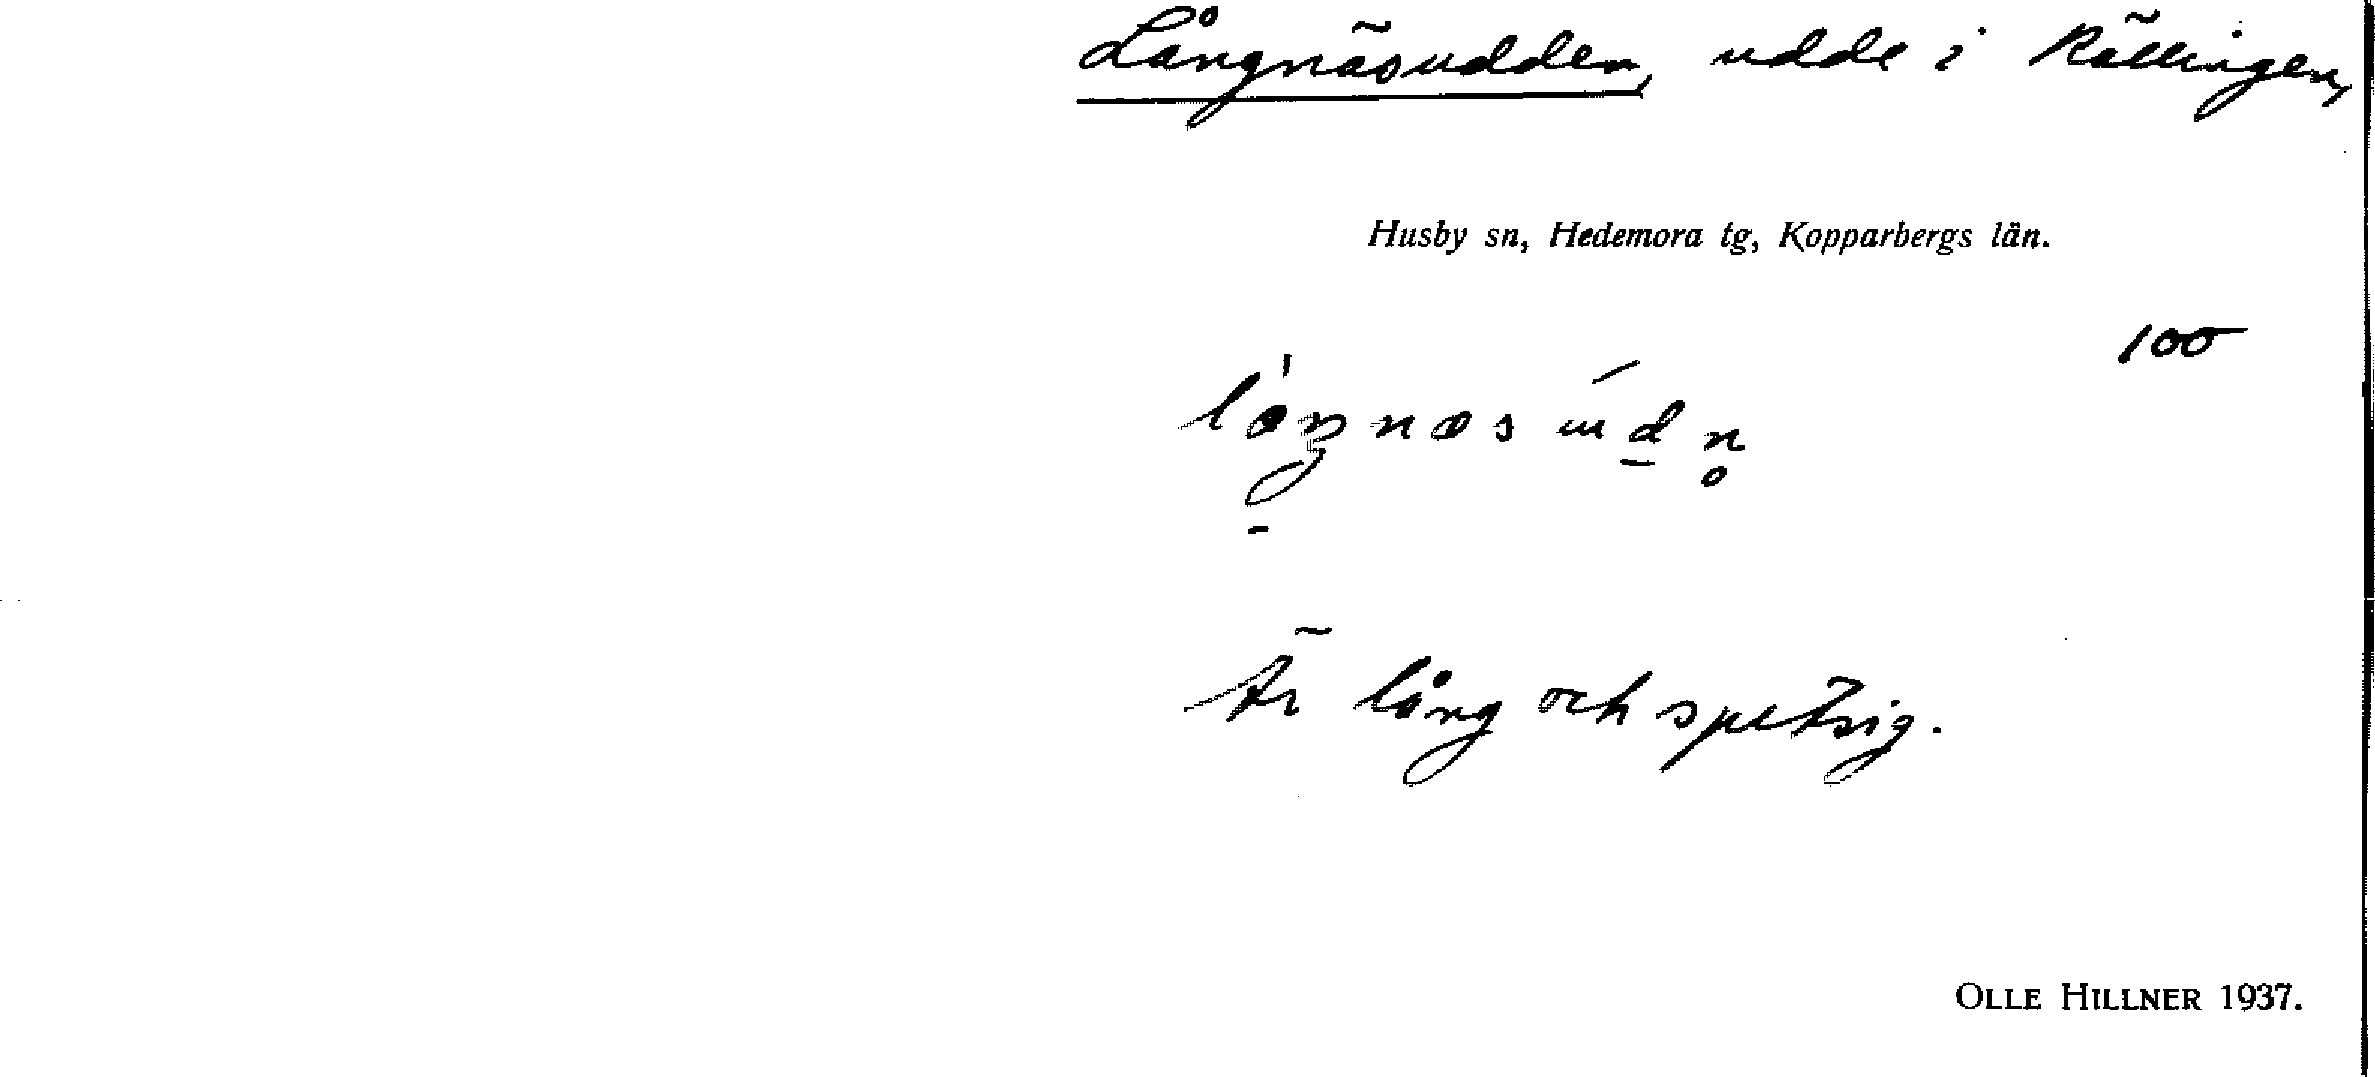 Långnäsudden, udde i Rällingen,
Husby sn, Hedemora tg, Kopparbergs län.
100
Är lång och spetsig.
OLLE HILLNER 1937.